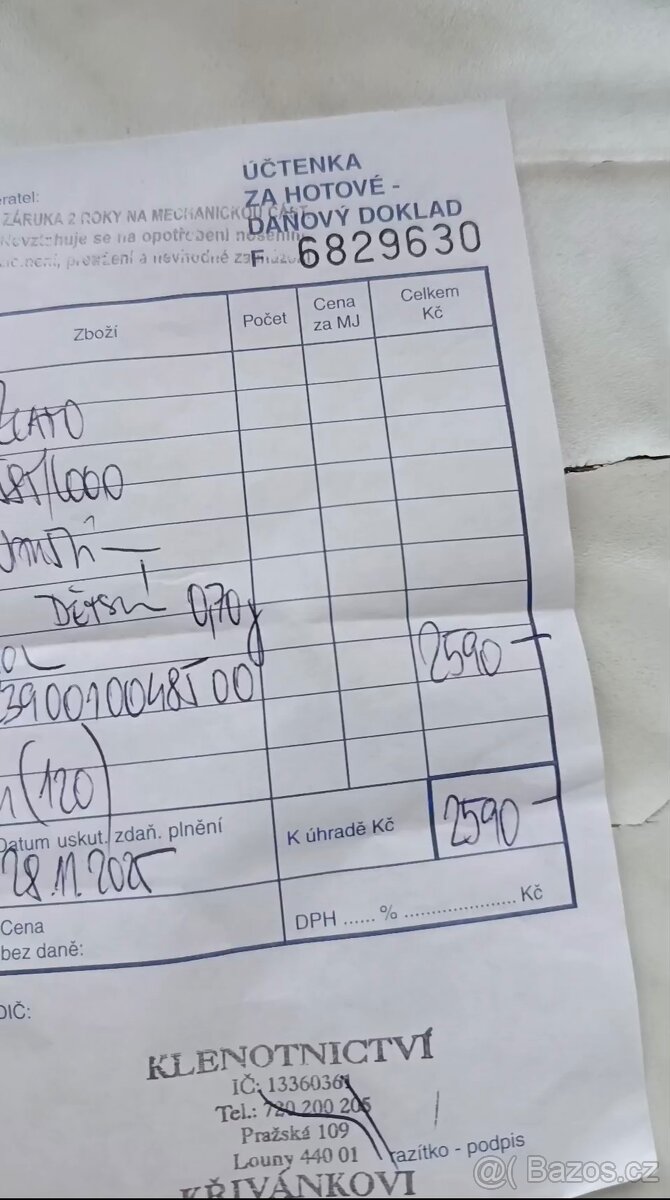 ÚČTENKA
ZA HOTOVÉ -
DAŇOVÝ DOKLAD
eratel:
ZÁRUKA 2 ROKY NA MECHANICKOU ČÁST
Nevztahuje se na opotřebení nošením,
a nevhodné
F 6829630
Zboží
Počet
Cena
za MJ
Celkem
Kč
ZLATO
585/1000
DĚTSKÉ 0,70g
2590-
3900100485 00
(120)
Datum uskut. zdaň. plnění
28.11.2025
K úhradě Kč
2590-
Cena
bez daně:
DPH ...... % ..................... Kč
DIČ:
KLENOTNICTVÍ
IČ: 13360361
Tel.: 720 200 205
Pražská 109
Louny 440 01
razítko - podpis
KŘIVÁNKOVI
Bazos.cz